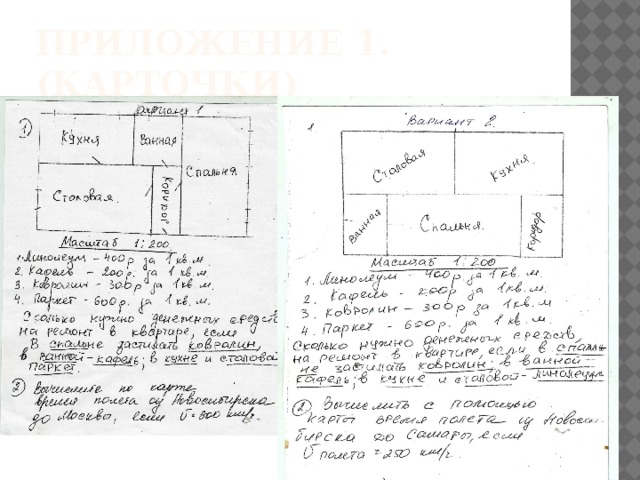 ПРИЛОЖЕНИЕ 1.
(КАРТОЧКИ)
Вариант 1
1)
Кухня
Ванная
Спальня
Столовая.
Коридор
Масштаб 1:200.
1. Линолеум – 400 р за 1 кв.м.
2. Кафель – 200 р. за 1 кв.м.
3. Ковролин – 300 р за 1 кв.м.
4. Паркет – 600 р. за 1 кв.м.
Сколько нужно денежных средств
на ремонт в квартире, если
В спальне застилать ковролин,
в ванной – кафель; в кухне и столовой
паркет.
2) Вычислите по карте
время полета из Новосибирска
до Москвы, если V=800 км/ч.
Вариант 2.
1
Столовая
Кухня.
Ванная
Спальня.
Коридор
Масштаб 1:200
1. Линолеум - 400 р за 1 кв.м.
2. Кафель - 200 р за 1 кв.м.
3. Ковролин - 300 р за 1 кв.м
4. Паркет - 600 р. за 1 кв.м
Сколько нужно денежных средств,
на ремонт в квартире, если в спаль
не застилать ковролин, в ванной –
кафель; в кухне и столовой - линолеум
2) Вычислить с помощью
карты время полета из Новоси-
бирска до Самары, если
V полета = 250 км/ч.